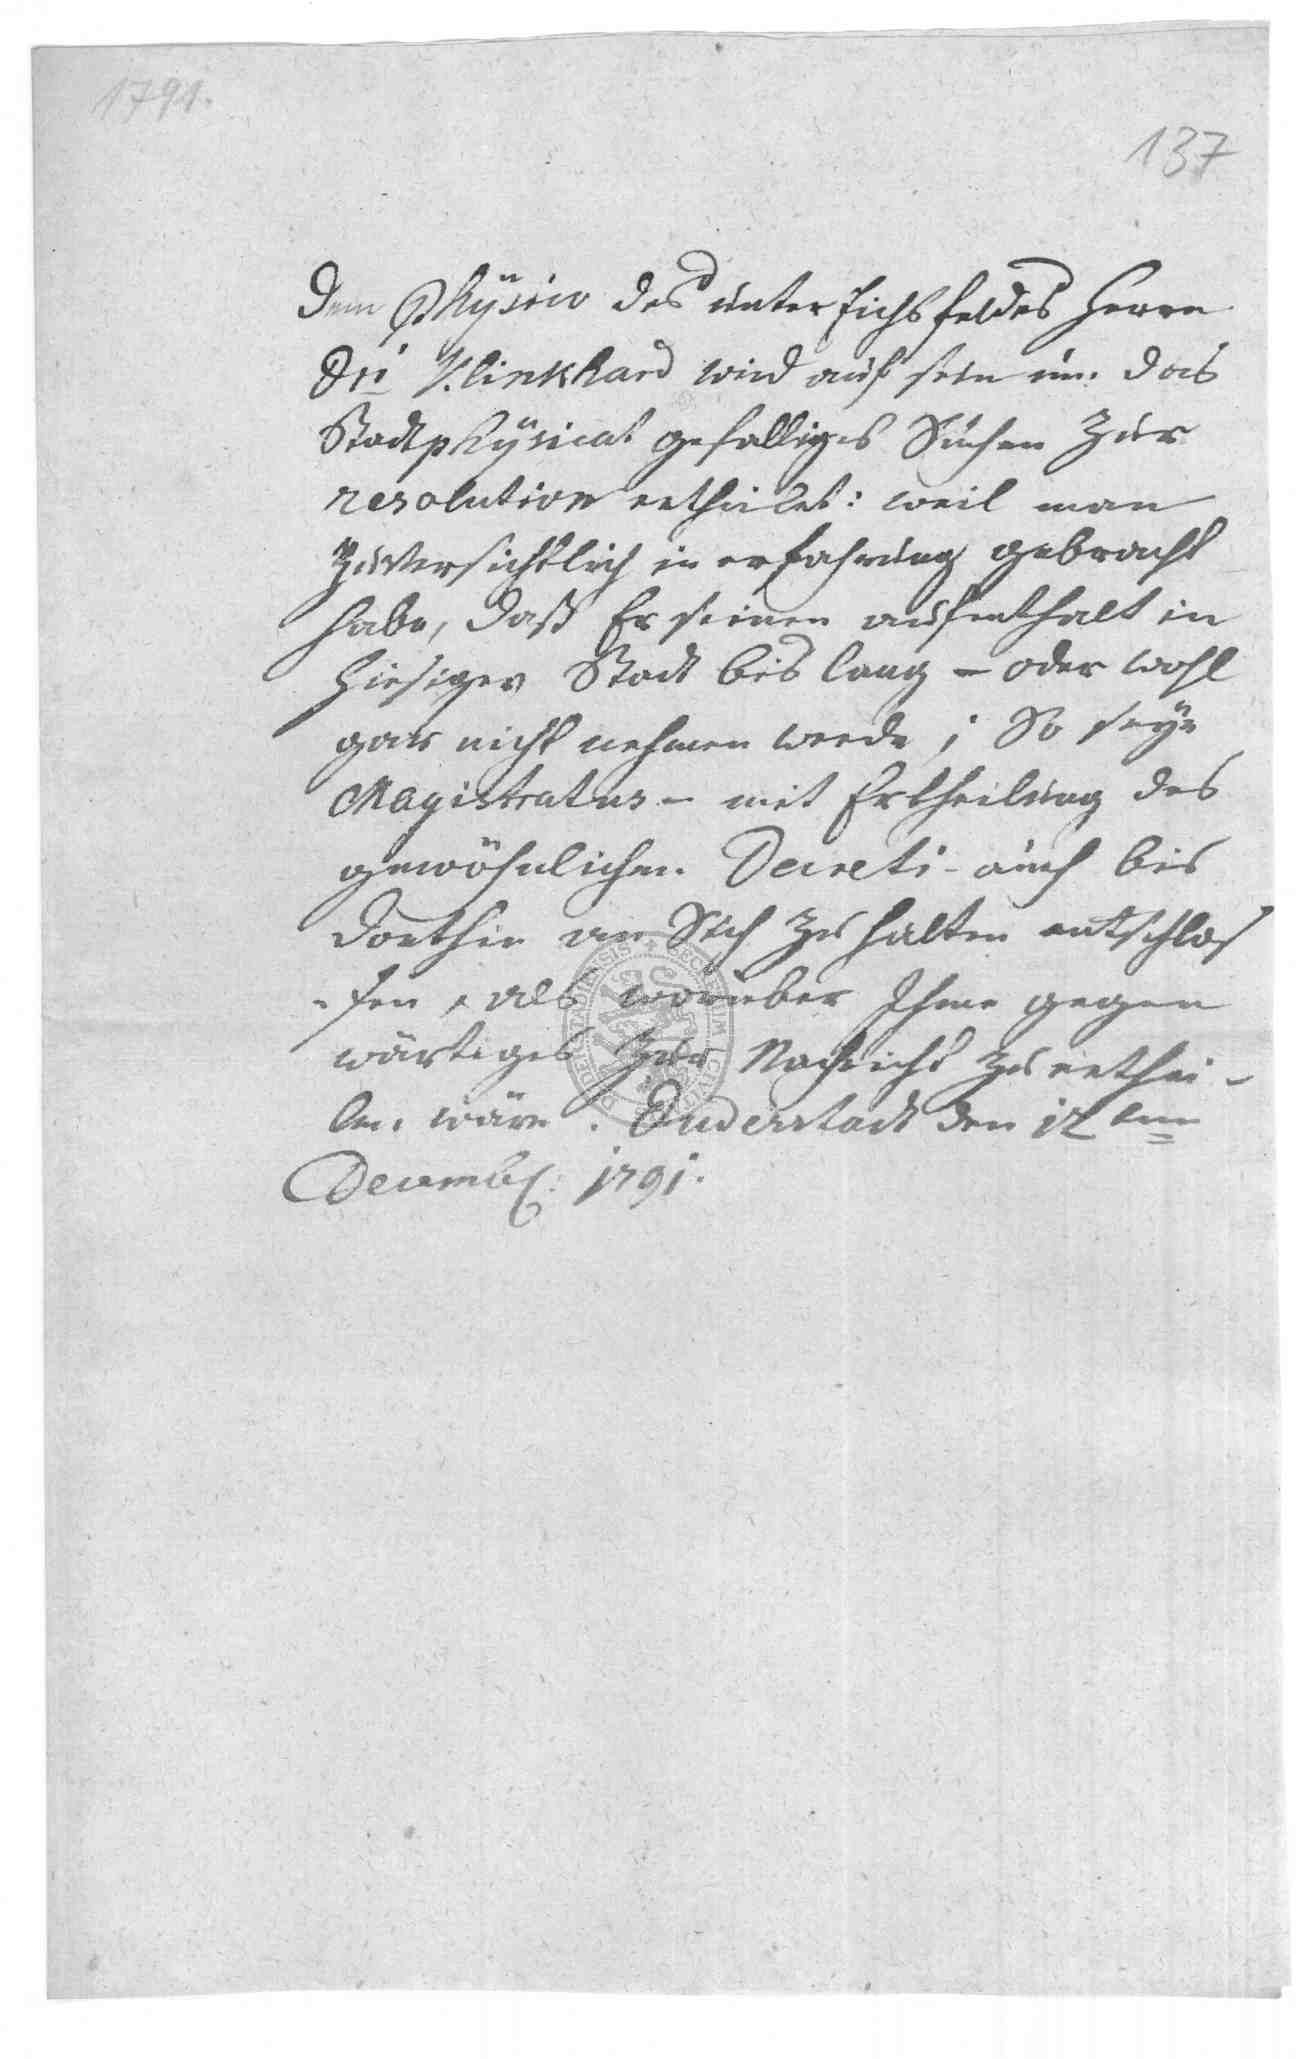 1791.
137
Dem Physico des unter Eichsfeldes Herrn
Dri Klinkhard wird auf sein um das
Stadtphysicat gefälliges Suchen zur
resolution ertheilet: weil man
zuversichtlich in erfahrung gebracht
habe, daß Er seinen aufenthalt in
hiesiger Stadt bis lang - oder wohl
gar nicht nehmen werde; So seye
Magistratus - mit Ertheilung des
gewöhnlichen Decreti - auch bis
dorthin an Sich zu halten entschlos
-sen, als worüber Ihme gegen
wärtiges zur Nachricht zu erthei-
len wäre. Duderstadt den 12ten
Decembr: 1791.